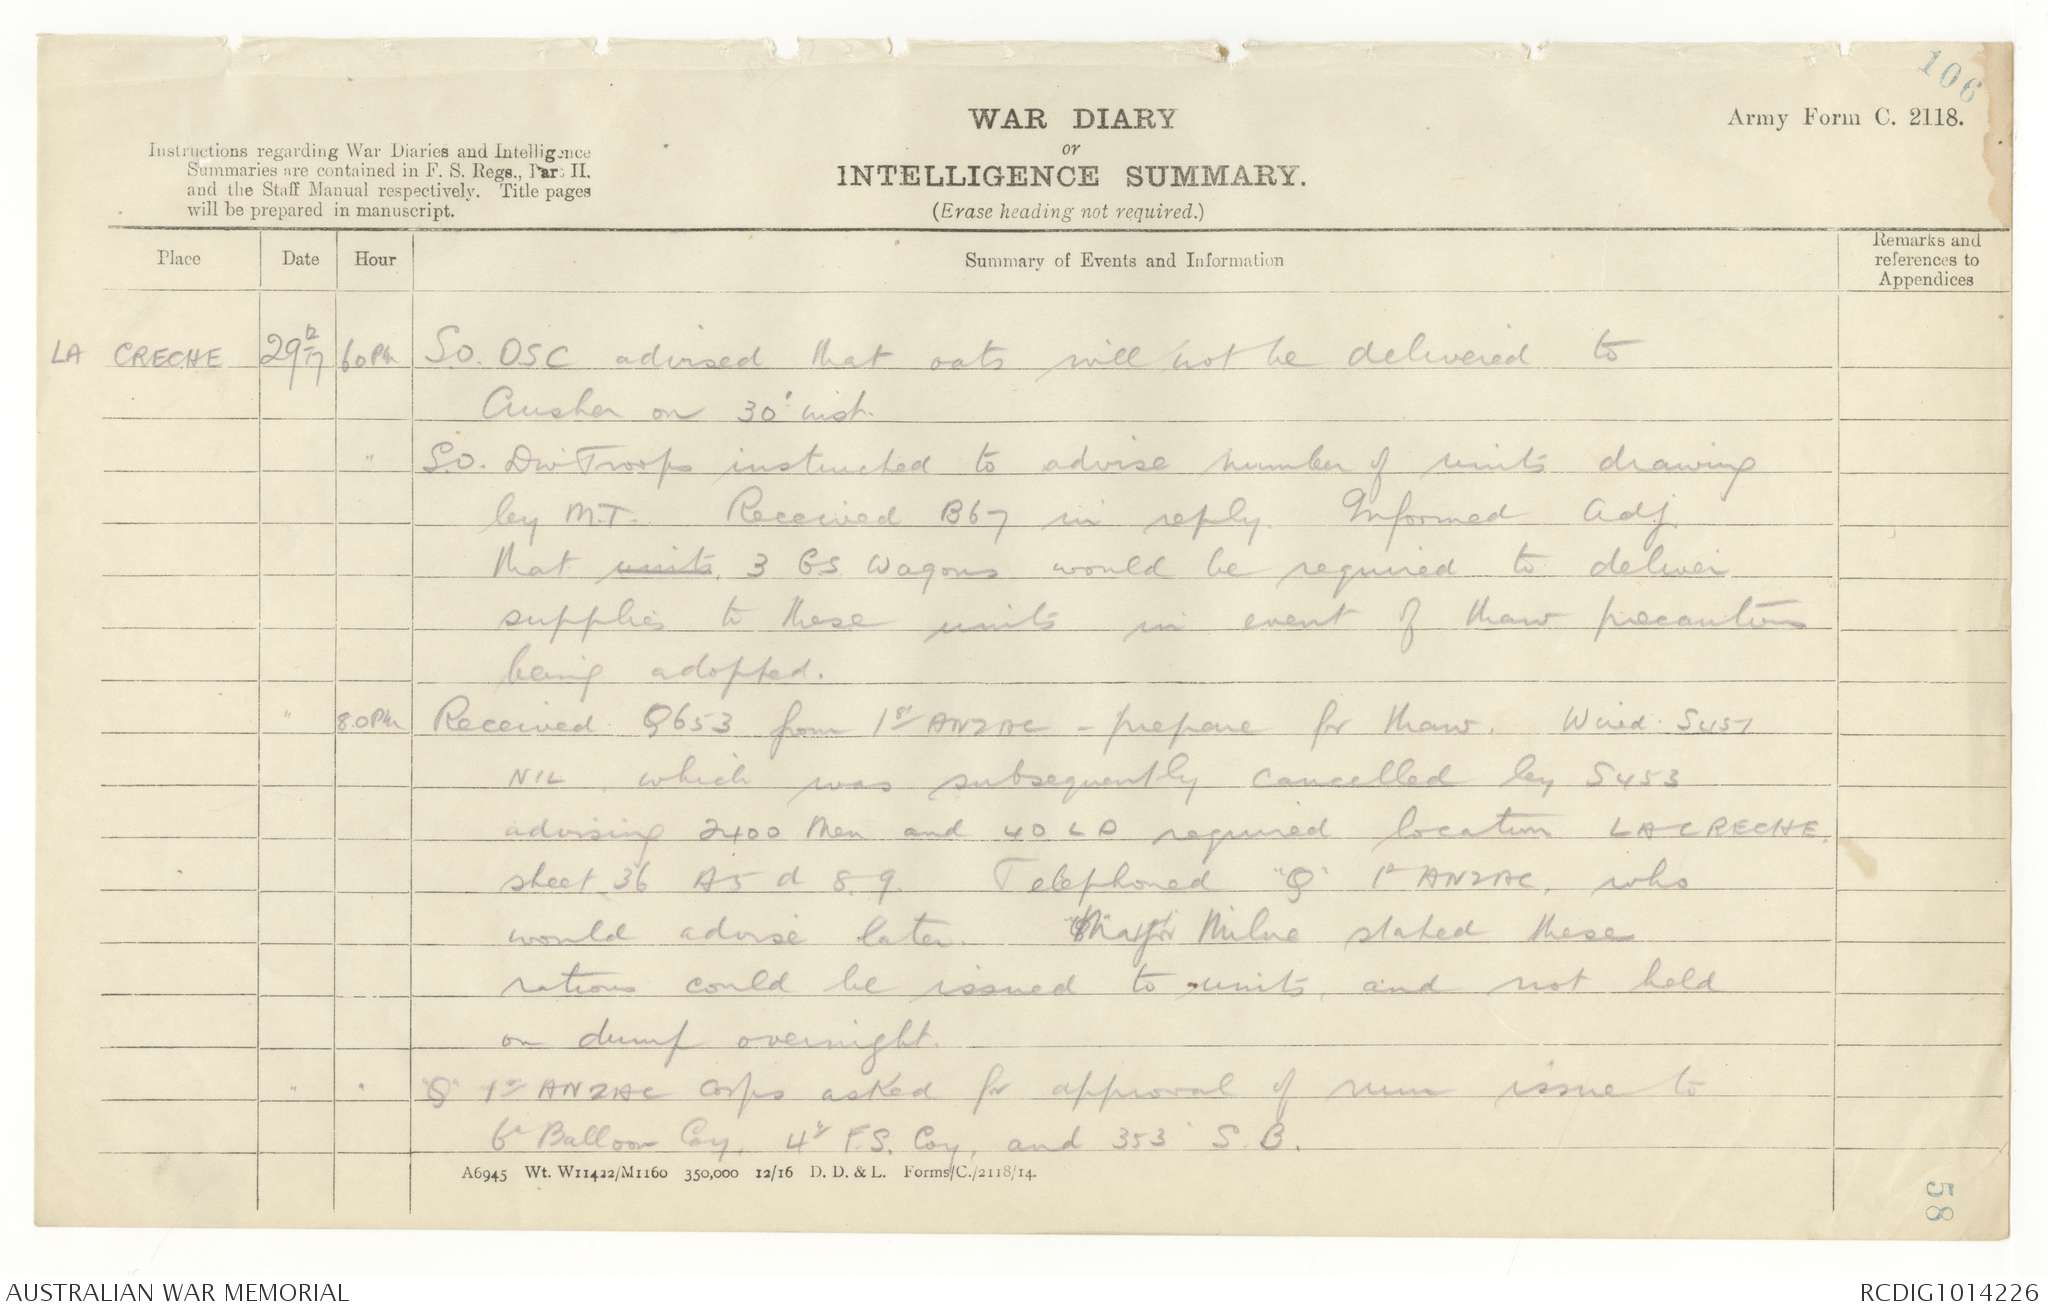 106
WAR DIARY
or
INTELLIGENCE SUMMARY.
(Erase heading not required.)
Army Form C. 2118.
Instructions regarding War Diaries and Intelligence
Summaries are contained in F. S. Regs., Part II.
and the Staff Manual respectively. Title pages
will be prepared in manuscript.
Place Date Hour Summary of Events and Information Remarks and references to Appendices
LA CRECHE 29 12/17 6.0 Pm S.O. DSC advised that oats will not be delivered to
on 30' inst.
" S.O. Div Troops instructed to advise number of units drawing
by M.T. Received B67 in reply. Informed Adj.
that units 3 GS Wagons would be required to deliver
supplies to these units in event of thaw precautions
being adopted.
" 8.0 Pm Received Q653 from 1st ANZAC - prepare for thaw. Wired S451
NIL, which was subsequently cancelled by S453
advising 2400 Men and 40 LD required location LA CRECHE.
sheet 36 A5 d 8.9. Telephoned "Q" 1st ANZAC, who
would advise later. Major Milne stated these
rations could be issued to units, and not held
on dump overnight.
" " "Q" 1st ANZAC Corps asked for approval of rum issue to
6th Balloon Coy, 4th F.S. Coy, and 353 S.B.
A6945 Wt. W11422/M1160 350,000 12/16 D. D. & L. Forms/C./2118/14.
58
AUSTRALIAN WAR MEMORIAL
RCDIG1014226